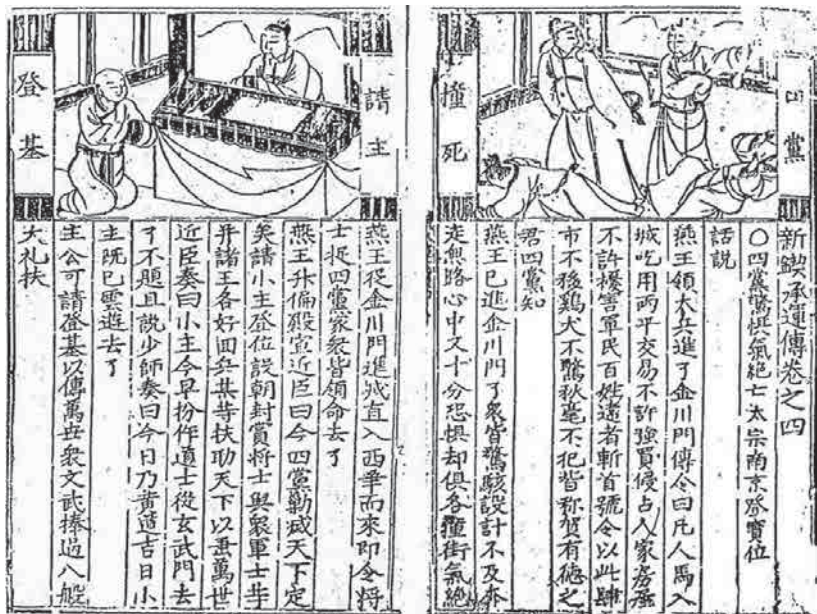 四黨
撞死
新鍥承運傳卷之四
〇四黨驚惧氣絕亡太宗南京登寶位
話説
燕王領大兵進了金川門傳令曰凡人馬入
城吃用兩平交易不許強買侵占人家房屋
不許擾害軍民百姓違者斬首號令以此肆
市不移鷄犬不驚秋毫不犯皆称賀有德之
君四黨知
燕王已進金川門了衆皆驚駭設計不及奔
走無路心中又十分恐惧却俱各撞街氣絕
請主
登基
燕王從金川門進城直入西華而來即令將
士捉四黨家衆皆領命去了
燕王升偏殿宣近臣曰今四黨勦滅天下定
矣請小主登位設朝封賞將士與衆軍士等
并諸王各好回兵共等扶功天下以垂萬世
近臣奏曰小主今早扮作道士從玄武門去
了不題且說少師奏曰今日乃黄道吉日小
主既已雲遊去了
主公可請登基以傳萬世衆文武捧過八般
大礼扶